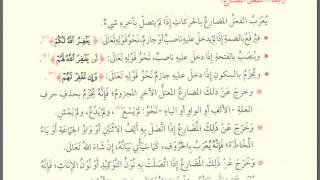 يُعْرَبُ الفعلُ المضارعُ بالحركاتِ إذَا لَمْ يتصلْ بآخرِهِ شيءٌ.
فيُرفعُ بالضمةِ إذَا لمْ يدخُلْ عليهِ ناصبٌ أو جازمٌ نحوُ قولِهِ تَعَالَى: ﴿يَغْفِرُ ٱللَّهُ لَكُمْ﴾
ويُنصَبُ بالفتحةِ إذَا دخلَ عليهِ ناصبٌ نحوُ قولِهِ تَعَالَى: ﴿لَن يَغْفِرَ ٱللَّهُ لَهُمْ﴾
ويُجزمُ بالسكونِ إذَا دخلَ عليهِ جازمٌ نحوُ قولِهِ تَعَالَى:
وخرجَ عَنْ ذلكَ المضارعُ المعتلُّ الآخرِ المجزومُ؛ فإنَّهُ يُجْزَمُ بحذفِ حرفِ
العلةِ – الألفِ أو الواوِ أو الياءِ – نحوُ: لَمْ يسعَ ، ولَمْ يدْعُ، ولَمْ يمشِ.
وخرجَ عَنْ ذلكَ المُضَارعُ إذَا اتَّصَلَ بِهِ ألفُ الاثنَيْنِ أوْ واوُ الجماعَةِ أوْ ياءُ
المخاطَبَةِ، فَإنَّهُ يُعْرَبُ سيأتِي بيانُهُ، إِنْ شَاءَ اللهُ تَعَالَى.
وخرجَ عَنْ ذلكَ المُضَارعُ إذَا اتَّصَلَتْ بِهِ نُونُ التَّوْكِيدِ أَوْ نُونُ الإِنَاثِ، فَإنَّهُ